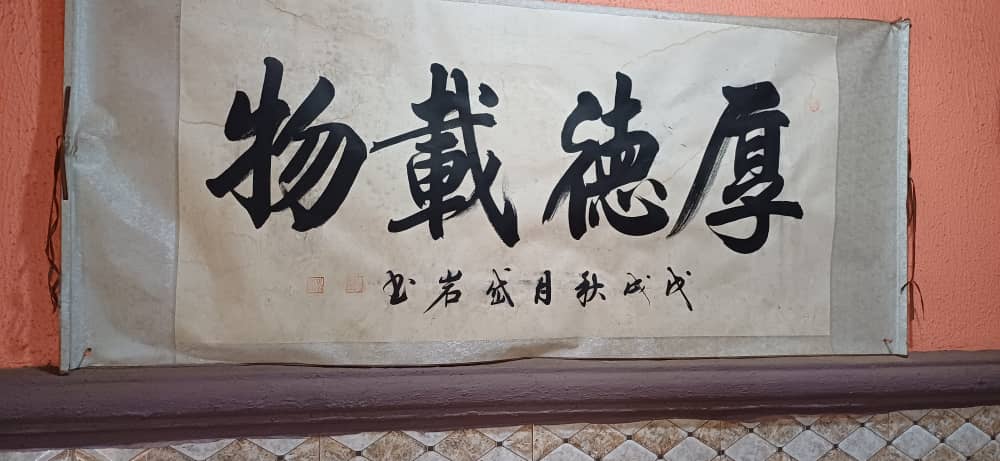 厚德載物
戊戌秋月岱岩书